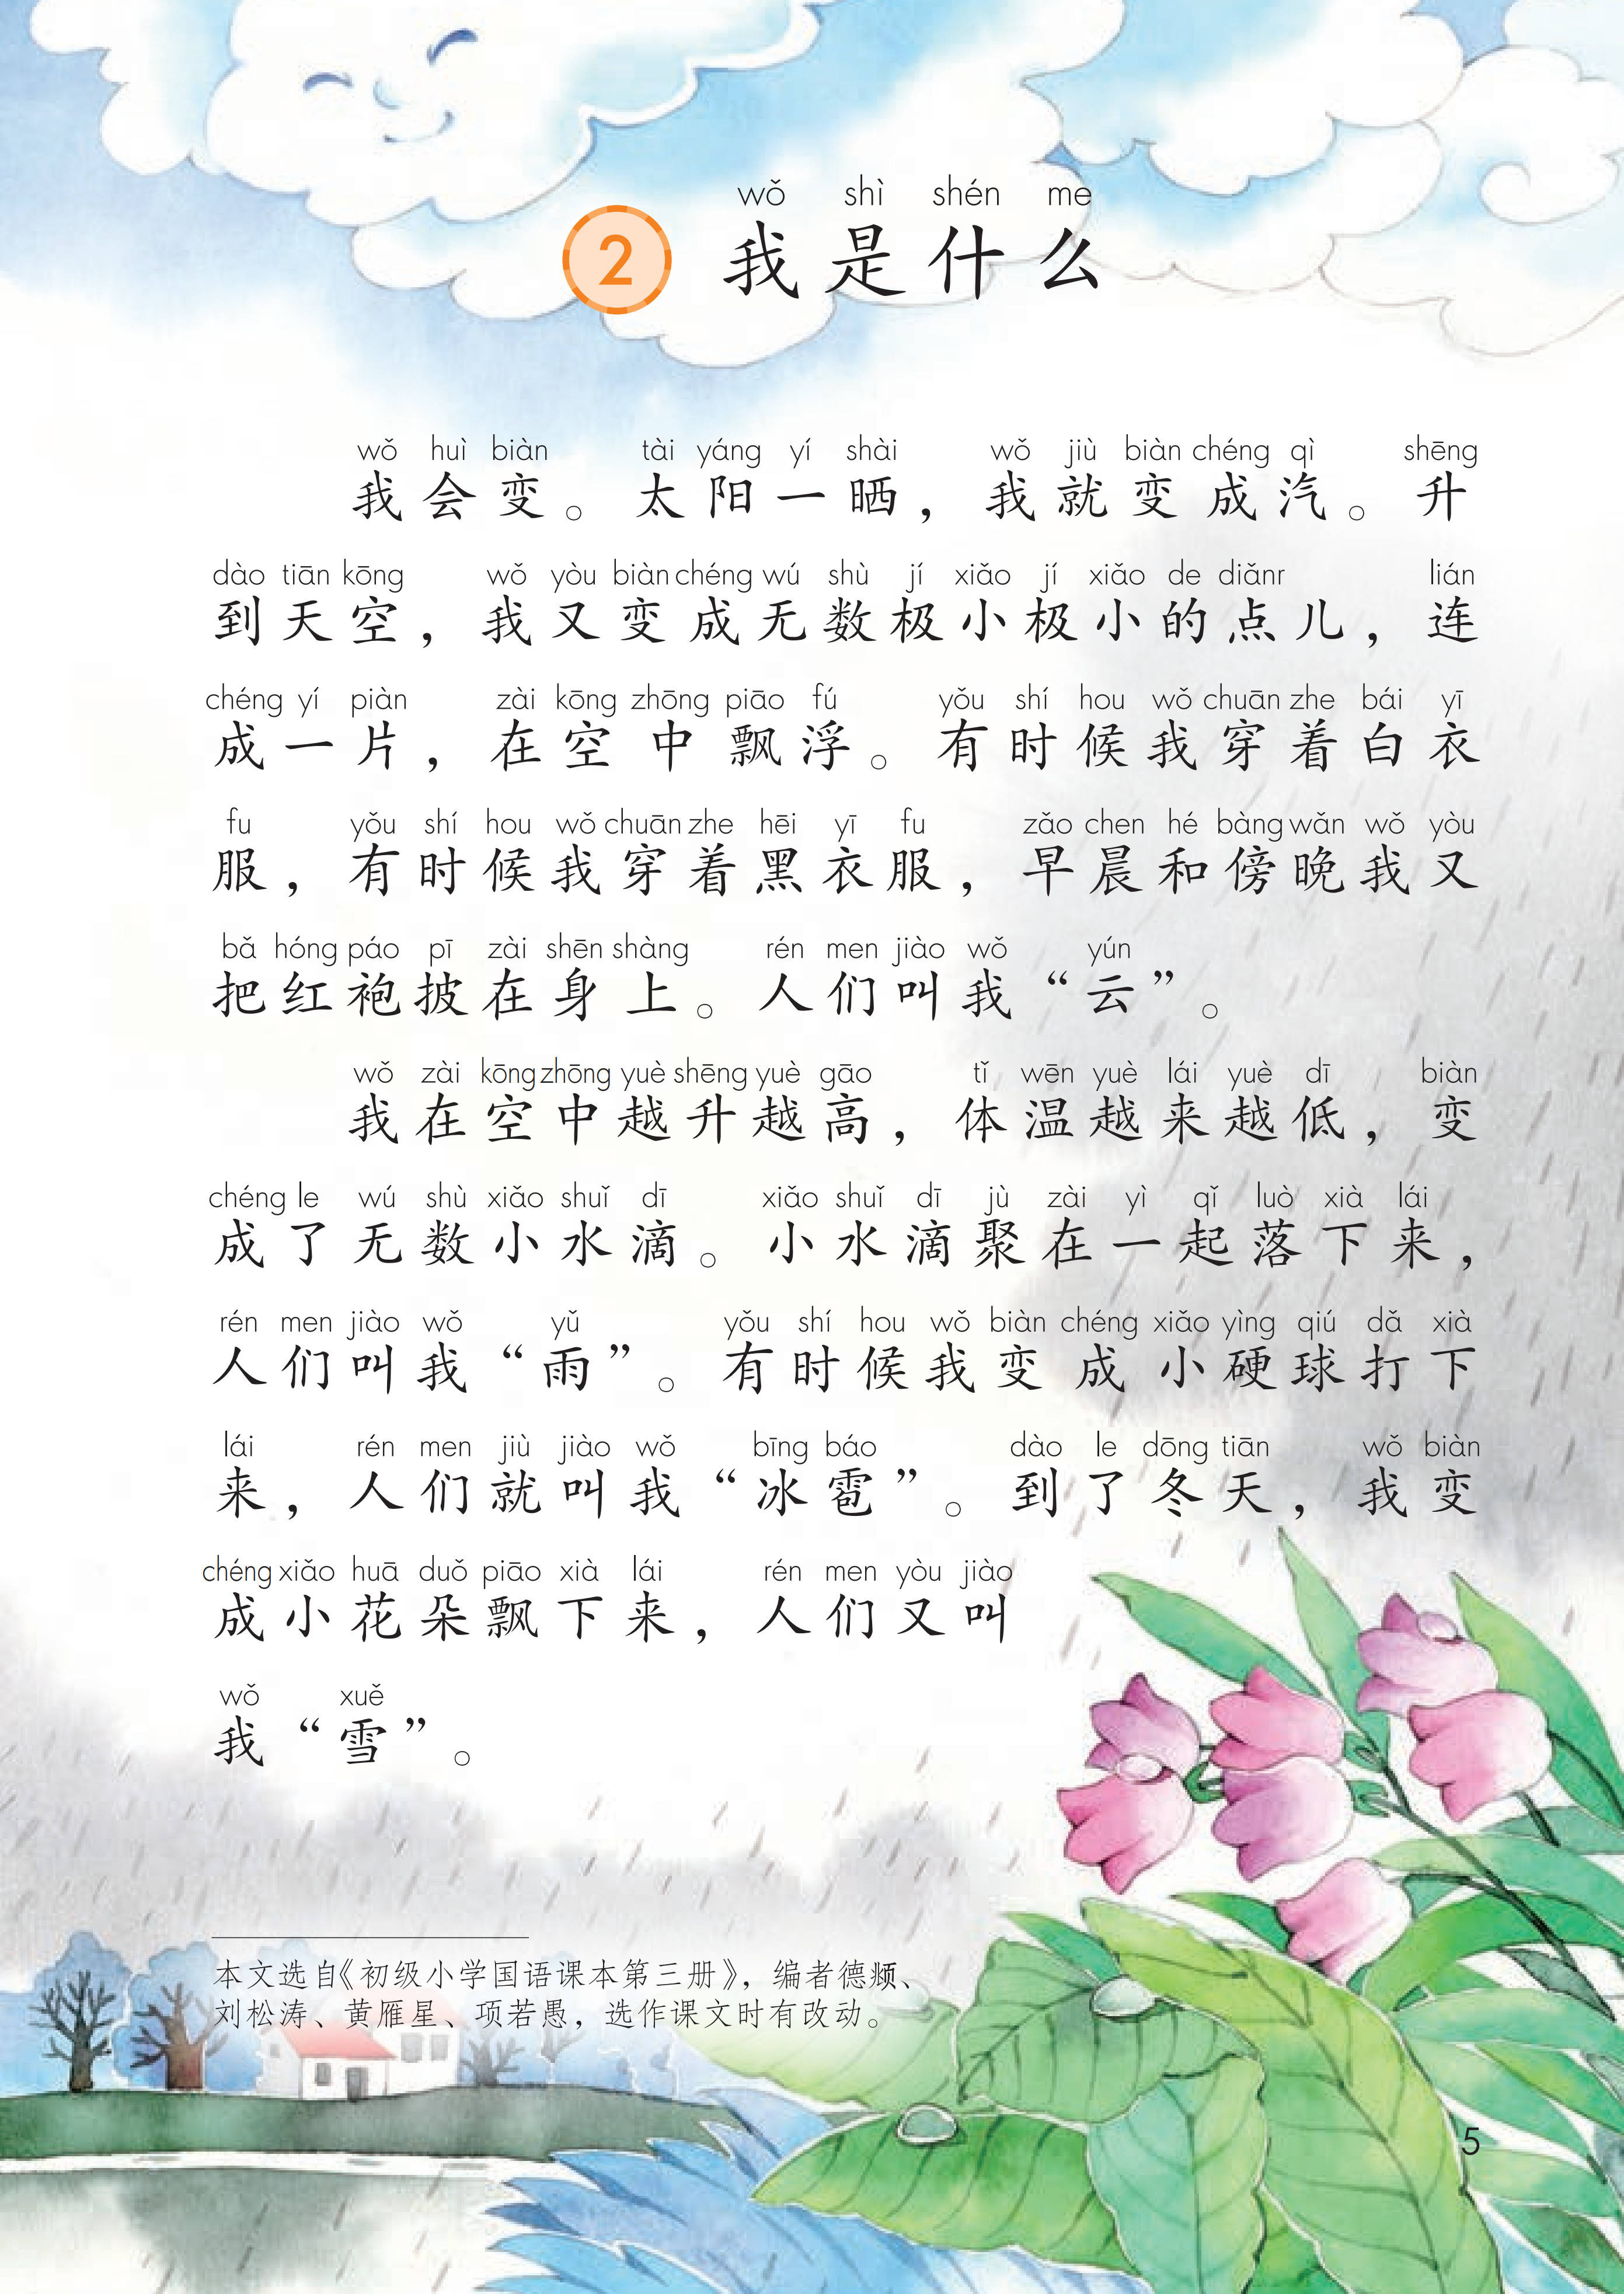 wǒ shì shén me
2 我是什么
wǒ huì biàn tài yáng yí shài wǒ jiù biàn chéng qì shēng
我会变。太阳一晒，我就变成汽。升
dào tiān kōng wǒ yòu biàn chéng wú shù jí xiǎo jí xiǎo de diǎnr lián
到天空，我又变成无数极小极小的点儿，连
chéng yí piàn zài kōng zhōng piāo fú yǒu shí hou wǒ chuān zhe bái yī
成一片，在空中飘浮。有时候我穿着白衣
fu yǒu shí hou wǒ chuān zhe hēi yī fu zǎo chen hé bàng wǎn wǒ yòu
服，有时候我穿着黑衣服，早晨和傍晚我又
bǎ hóng páo pī zài shēn shàng rén men jiào wǒ yún
把红袍披在身上。人们叫我“云”。
wǒ zài kōng zhōng yuè shēng yuè gāo tǐ wēn yuè lái yuè dī biàn
我在空中越升越高，体温越来越低，变
chéng le wú shù xiǎo shuǐ dī xiǎo shuǐ dī jù zài yì qǐ luò xià lái
成了无数小水滴。小水滴聚在一起落下来，
rén men jiào wǒ yǔ yǒu shí hou wǒ biàn chéng xiǎo yìng qiú dǎ xià
人们叫我“雨”。有时候我变成小硬球打下
lái rén men jiù jiào wǒ bīng báo dào le dōng tiān wǒ biàn
来，人们就叫我“冰雹”。到了冬天，我变
chéng xiǎo huā duǒ piāo xià lái rén men yòu jiào
成小花朵飘下来，人们又叫
wǒ xuě
我“雪”。
本文选自《初级小学国语课本第三册》，编者德颀、
刘松涛、黄雁星、项若愚，选作课文时有改动。
5